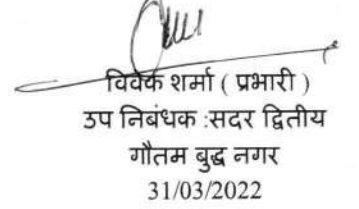 विवेक शर्मा ( प्रभारी )
उप निबंधक :सदर द्वितीय
गौतम बुद्ध नगर
31/03/2022